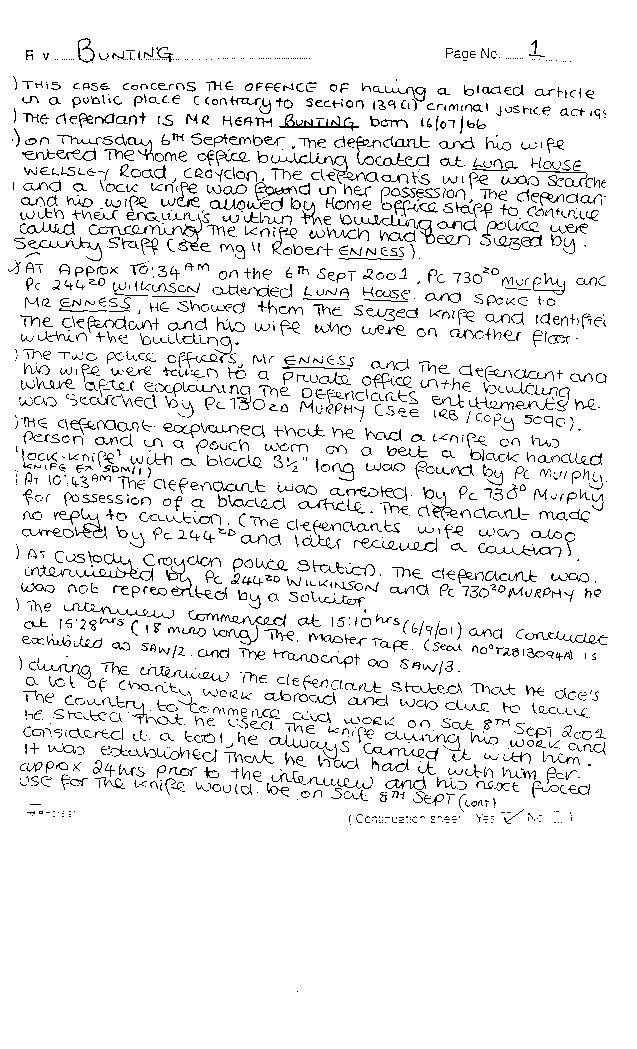 R v BUNTING Page No. 1
) THIS CASE concerns THE OFFENCE OF having a bladed article
in a public place (contrary to section 139(1) criminal justice act 198
) THE defendant is MR HEATH BUNTING born 16/07/66
) on Thursday 6TH September, The defendant and his wife
entered The home office building located at LUNA HOUSE
WELLSLEY Road, CROYDON. The defendants wife was searche
and a lock knife was found in her possession, The defendan
and his wife were allowed by Home office staff to continue
with their enquirys within the building and police were
called concerning The knife which had been siezed by
Security Staff (See mg11 Robert ENNESS).
) AT APPROX 10:34AM on the 6TH Sept 2001, PC 730ZD Murphy and
PC 244ZD WILKINSON attended LUNA HOUSE and spoke to
MR ENNESS, HE showed them The seized knife and identifie
The defendant and his wife who were on another floor
within the building.
) The two police officers, Mr ENNESS and The defendant and
his wife were taken to a private office in the building
where after explaining The DEFENDANTS entitlements he
was searched by PC 730ZD MURPHY (See IRB/copy 5090).
) THE defendant explained that he had a knife on his
person and in a pouch worn on a belt a black handled
"lock-knife" with a blade 3½" long was found by PC Murphy.
KNIFE EX SDM/1)
) At 10:43AM The defendant was arrested by PC 730 Murphy
for possession of a bladed article. The defendant made
no reply to caution. (The defendants wife was also
arrested by PC 244ZD and later recieved a caution).
) At Custody Croydon police Station. The defendant was
interviewed by PC 244ZD WILKINSON and PC 730ZD MURPHY he
was not represented by a solicitor.
) The interview commenced at 15:10hrs (6/9/01) and concluded
at 15:28hrs (18 mins long) The master Tape. (Seal no T2813094A) is
exhibited as SAW/2. and The transcript as SAW/3.
) during The interview The defendant stated That he doe's
a lot of charity work abroad and was due to leave
The country to commence aid work on Sat 8TH Sept 2001
he stated That he used The knife during his work and
considered it a tool, he always carried it with him.
It was established That he had had it with him for
approx 24hrs prior to the interview and his next placed
use for The knife would be on Sat 8TH SEPT (cont)
(Continuation sheet Yes No )